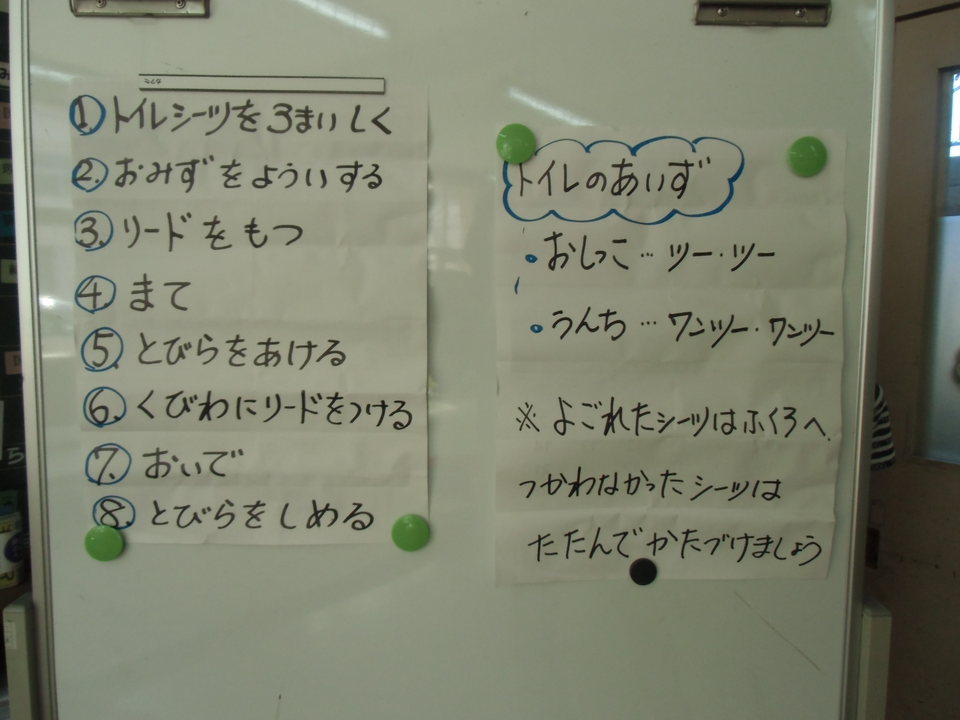 ①.トイレシーツを3まいしく
②.おみずをよういする
③.リードをもつ
④.まて
⑤.とびらをあける
⑥.くびわにリードをつける
⑦.おいで
⑧.とびらをしめる
トイレのあいず
・おしっこ…ツー・ツー
・うんち…ワンツー・ワンツー
※よごれたシーツはふくろへ.
つかわなかったシーツは
たたんでかたづけましょう